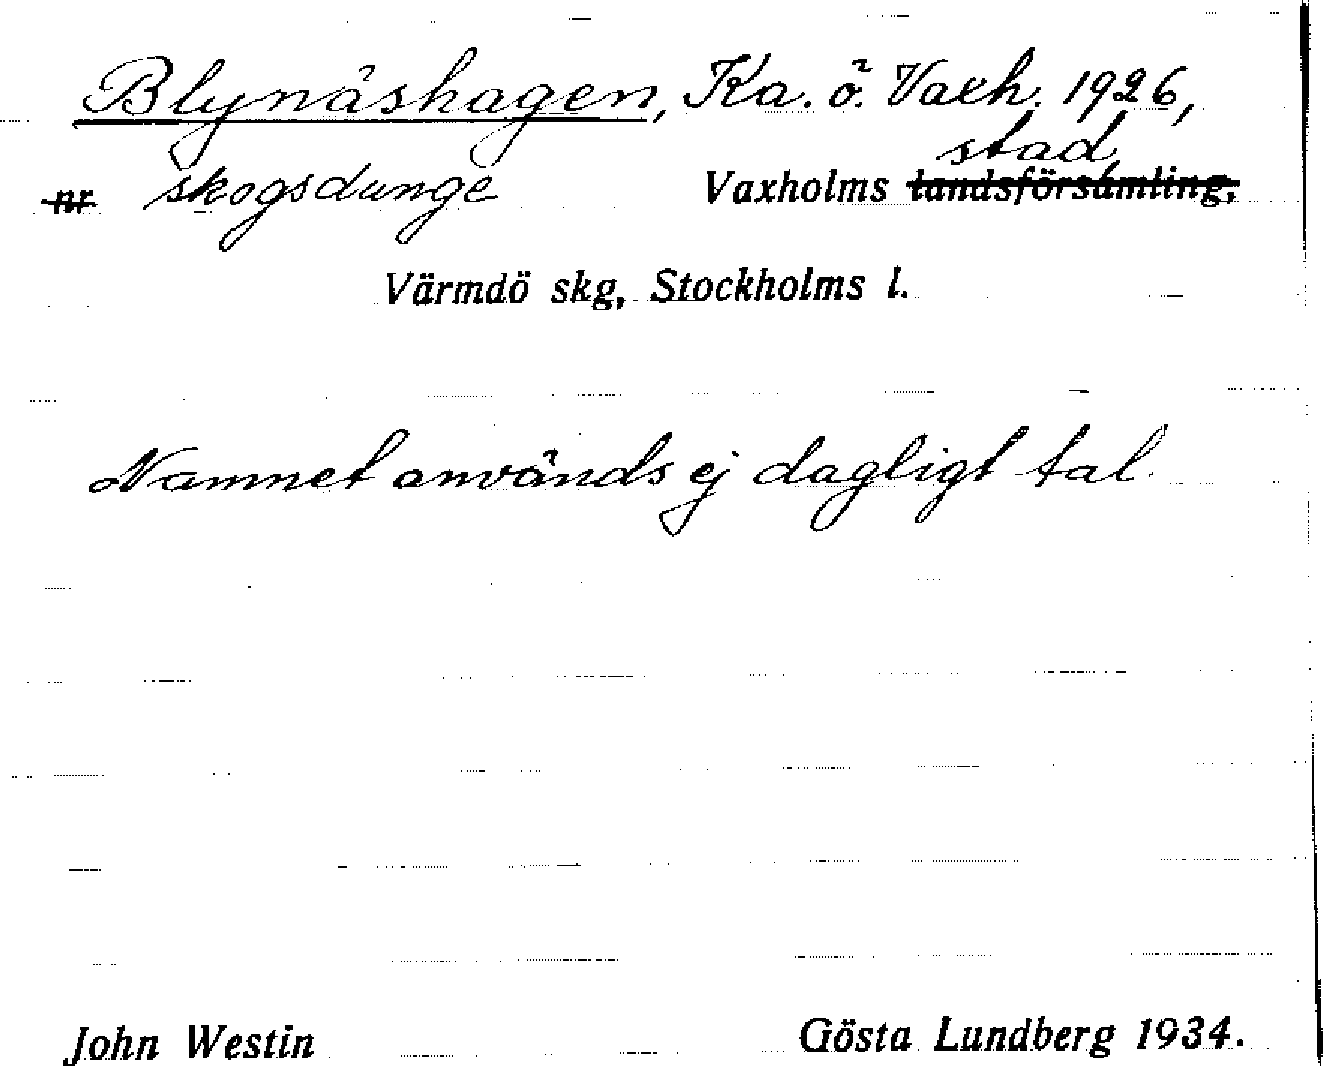 Blynäshagen, Ka. ö. Vaxh. 1926,
stad,
nr skogsdunge Vaxholms landsförsamling,
Värmdö skg, Stockholms l.
Namnet används ej dagligt tal.
John Westin Gösta Lundberg 1934.